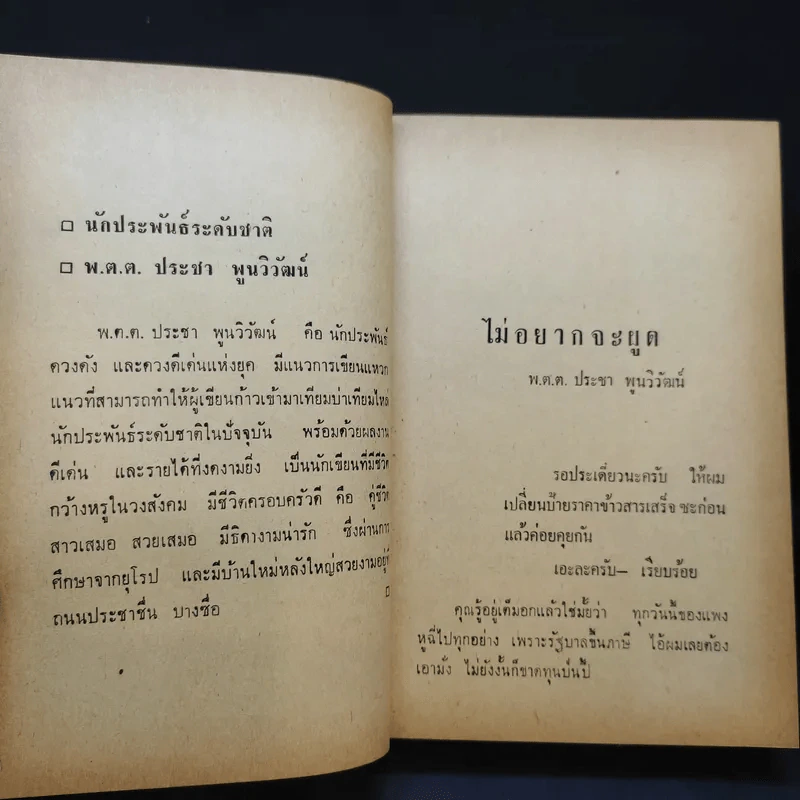 □ นักประพันธ์ระดับชาติ
□ พ.ต.ต. ประชา พูนวิวัฒน์
พ.ต.ต. ประชา พูนวิวัฒน์ คือ นักประพันธ์
ดวงดัง และดวงดีเด่นแห่งยุค มีแนวการเขียนแหวก
แนวที่สามารถทำให้ผู้เขียนก้าวเข้ามาเทียมบ่าเทียมไหล่
นักประพันธ์ระดับชาติในปัจจุบัน พร้อมด้วยผลงาน
ดีเด่น และรายได้ที่งดงามยิ่ง เป็นนักเขียนที่มีชีวิต
กว้างหรูในวงสังคม มีชีวิตครอบครัวดี คือ คู่ชีวิต
สาวเสมอ สวยเสมอ มีธิดางามน่ารัก ซึ่งผ่านการ
ศึกษาจากยุโรป และมีบ้านใหม่หลังใหญ่สวยงามอยู่
ถนนประชาชื่น บางซื่อ □
ไม่อยากจะผูด
พ.ต.ต. ประชา พูนวิวัฒน์
รอประเดี๋ยวนะครับ ให้ผม
เปลี่ยนป้ายราคาข้าวสารเสร็จ ซะก่อน
แล้วค่อยคุยกัน
เอะละครับ— เรียบร้อย
คุณรู้อยู่เต็มอกแล้วใช่มั้ยว่า ทุกวันนี้ของแพง
หูฉี่ไปทุกอย่าง เพราะรัฐบาลขึ้นภาษี ไอ้ผมเลยต้อง
เอามั่ง ไม่ยังงั้นก็ขาดทุนบ่นปี้